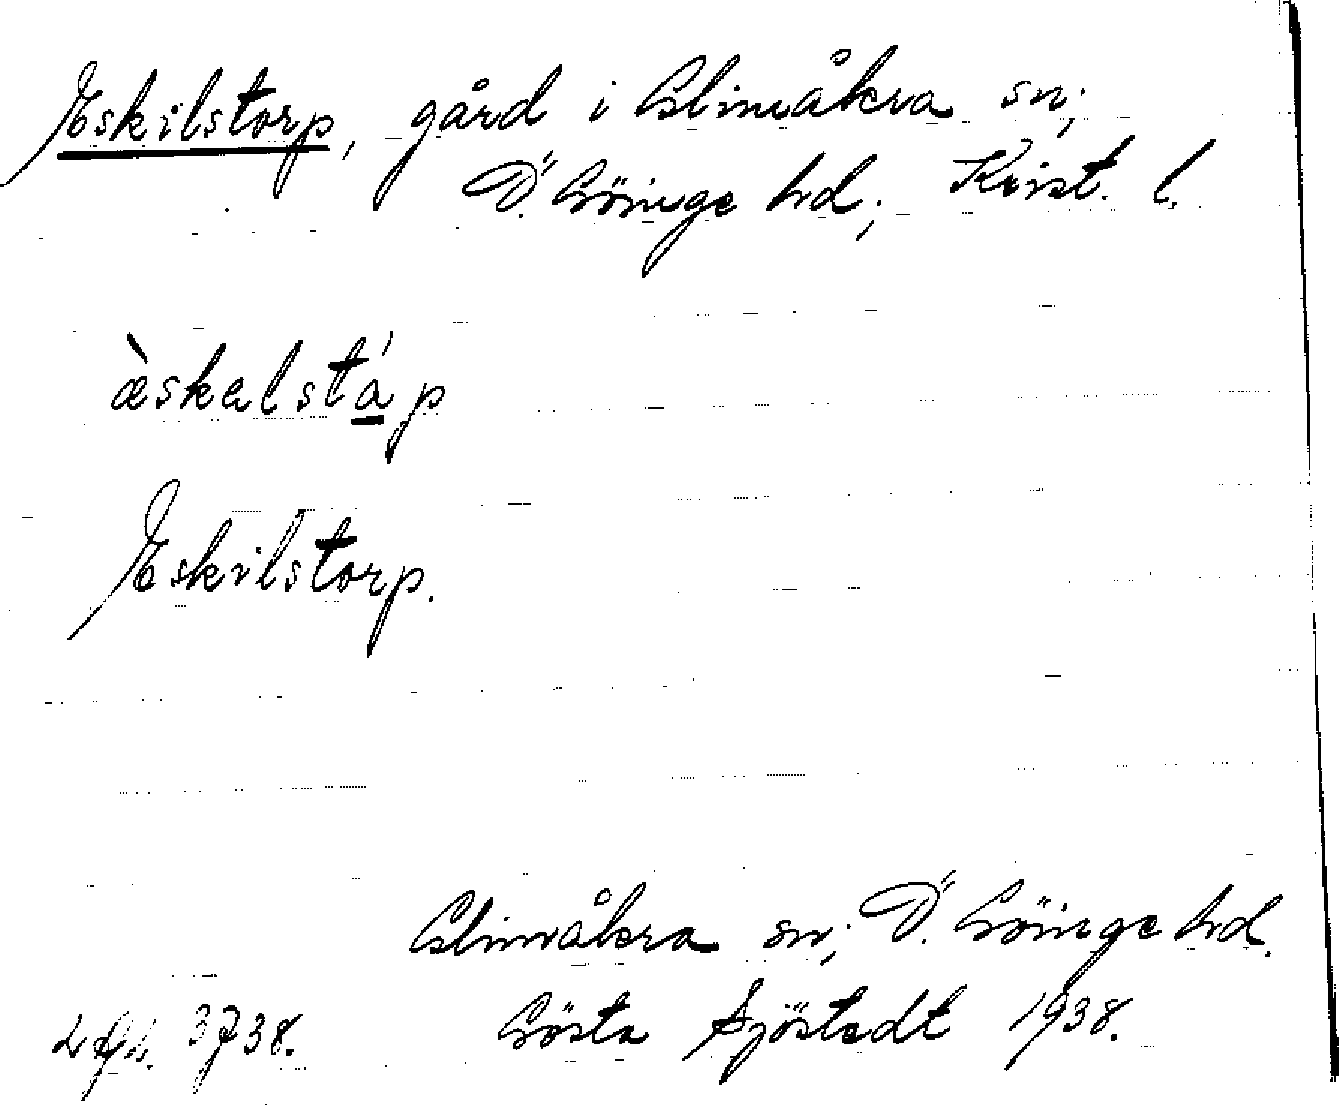 Eskilstorp, gård i Glimåkra sn;
Ö. Göinge hd; Krist. l.
æ̀skəlstá̠p
Eskilstorp.
Glimåkra sn; Ö. Göinge hd.
Gösta Sjöstedt 1938.
3738.